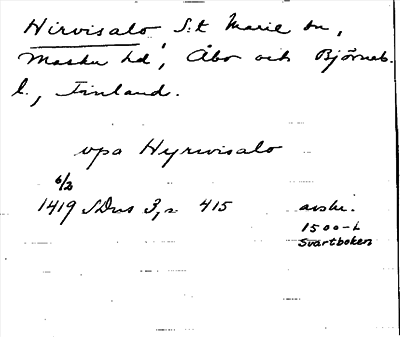 Hirvisalo S:t Marie sn,
Masku hd, Åbo och Björneb.
l., Finland.
opa Hyrwisalo
6/2
1419 SDns 3, s 415 avskr.
1500-t
Svartboken